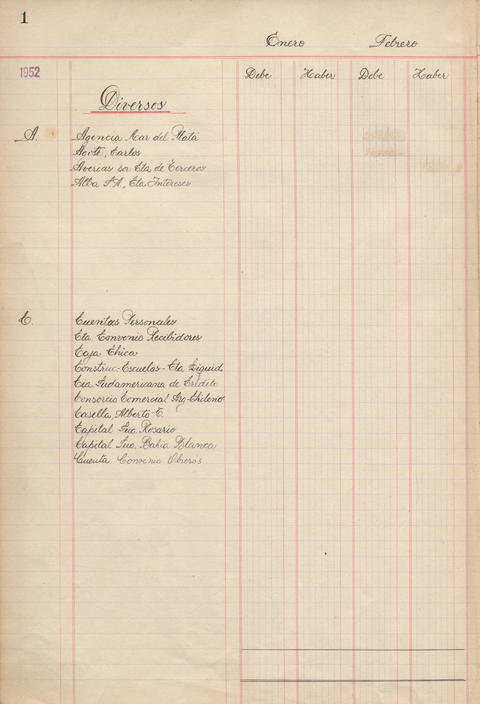 1
Enero Febrero
1952 Debe Haber Debe Haber
Diversos
A. Agencia Mar del Plata
Carlos
Averias s/a Cta de Terceros
Alba S.A, Cta Intereses
C. Cuentas Personales
Cta Convenio Recibidores
Caja Chica
Construc-Escuelas-Cta Liquid
Cia Sudamericana de Crédito
Consorcio Comercial Arg-Chileno
Casella, Alberto C.
Capital Suc. Rosario
Capital Suc. Bahia Blanca
Cuenta Convenio Obreros